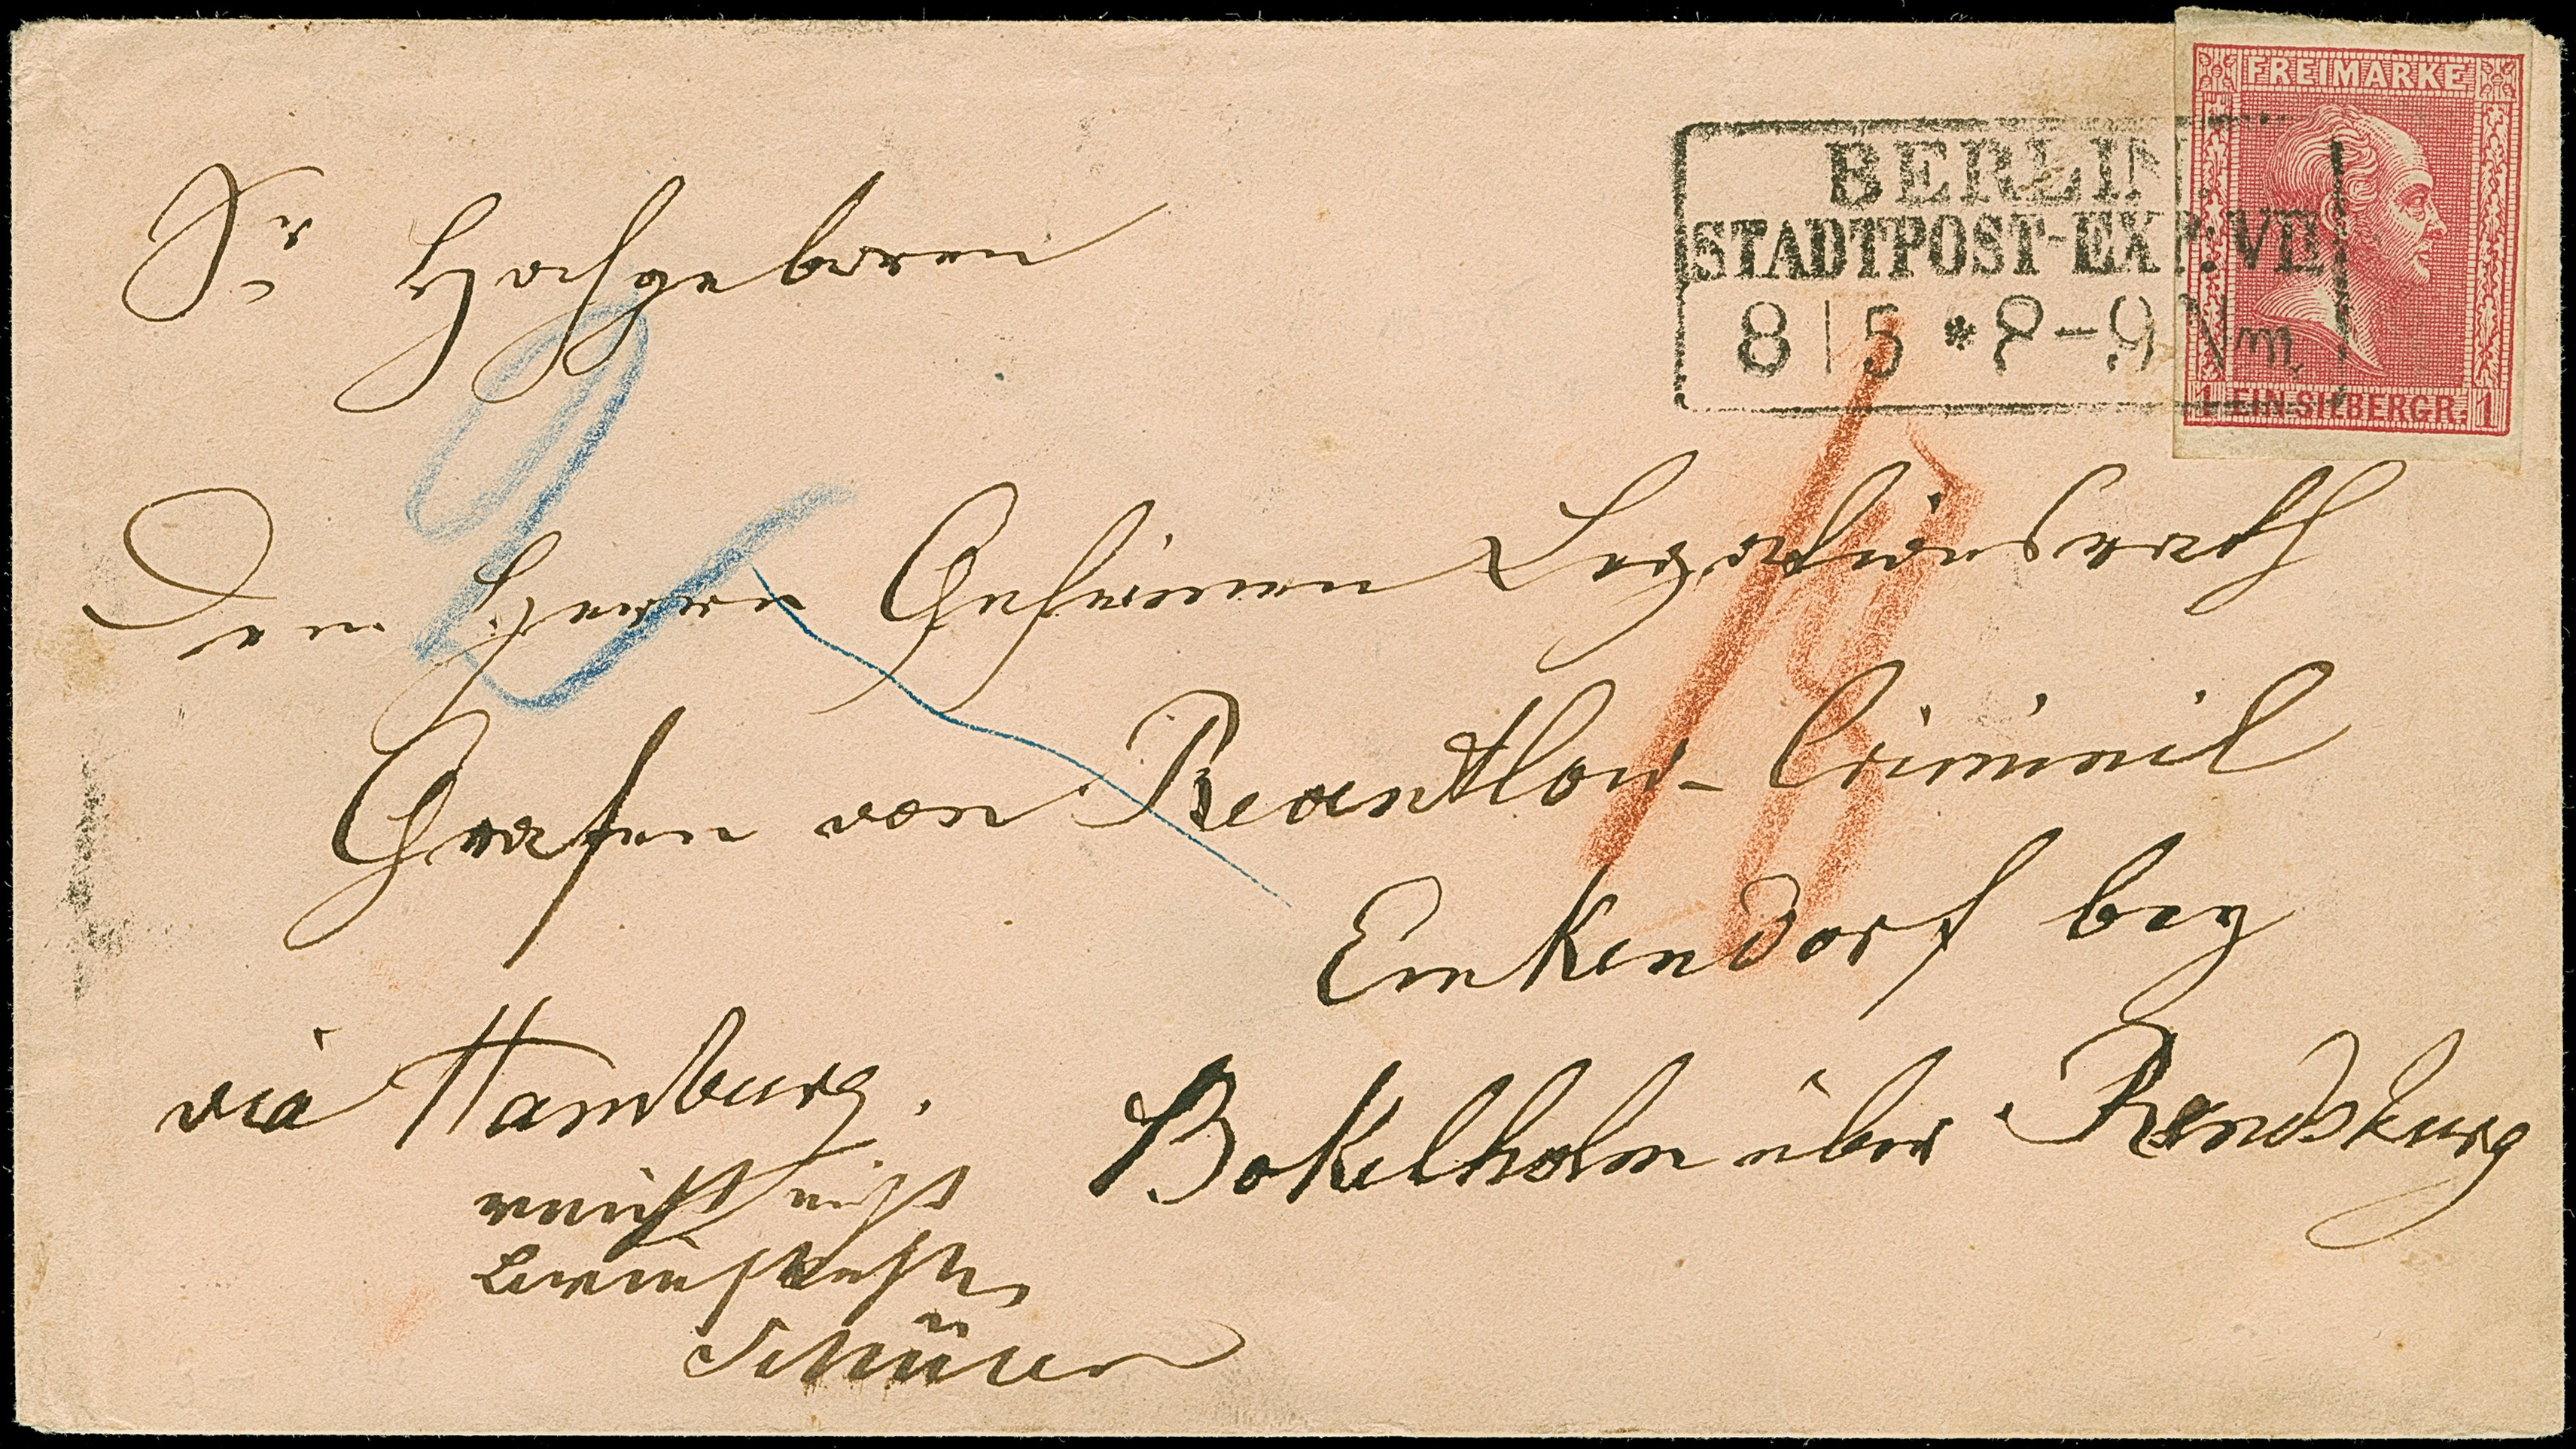 FREIMARKE
1 EIN SILBERGR. 1
BERLIN
STADTPOST-EXP: VII
8 | 5 * 8-9 Nm
Sr Hochgeboren
Den Herrn Geheimen Legationsrath
Grafen von Reventlow-Criminil
Emkendorf bey
via Hamburg.
Bokelholm über Rendsburg